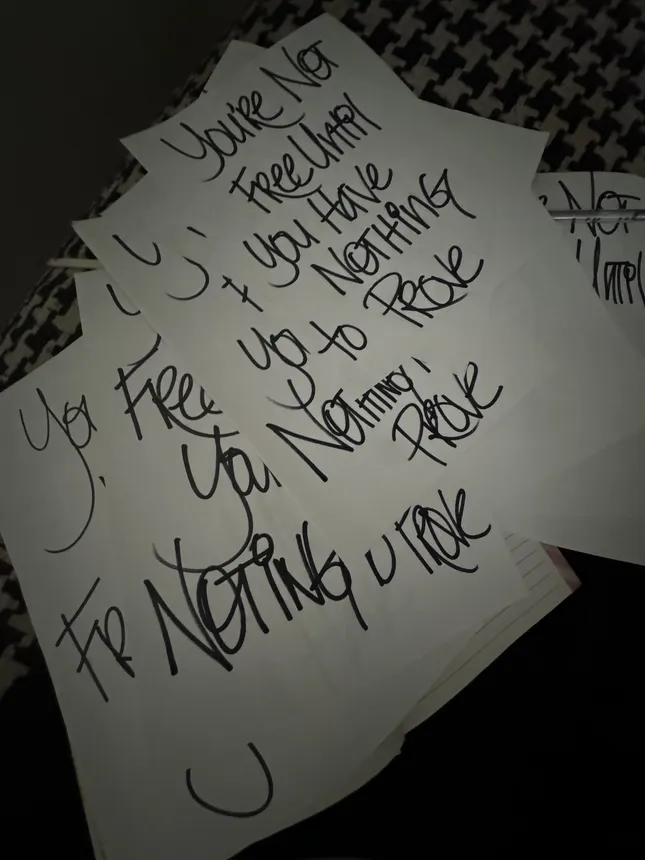 YOU'RE NOT
FREE UNTIL
YOU HAVE
NOTHING
TO PROVE
YO
NOTHING
PROVE
YO FREE
YOU
NOTHING
PROVE
FR
NOT
UNTIL